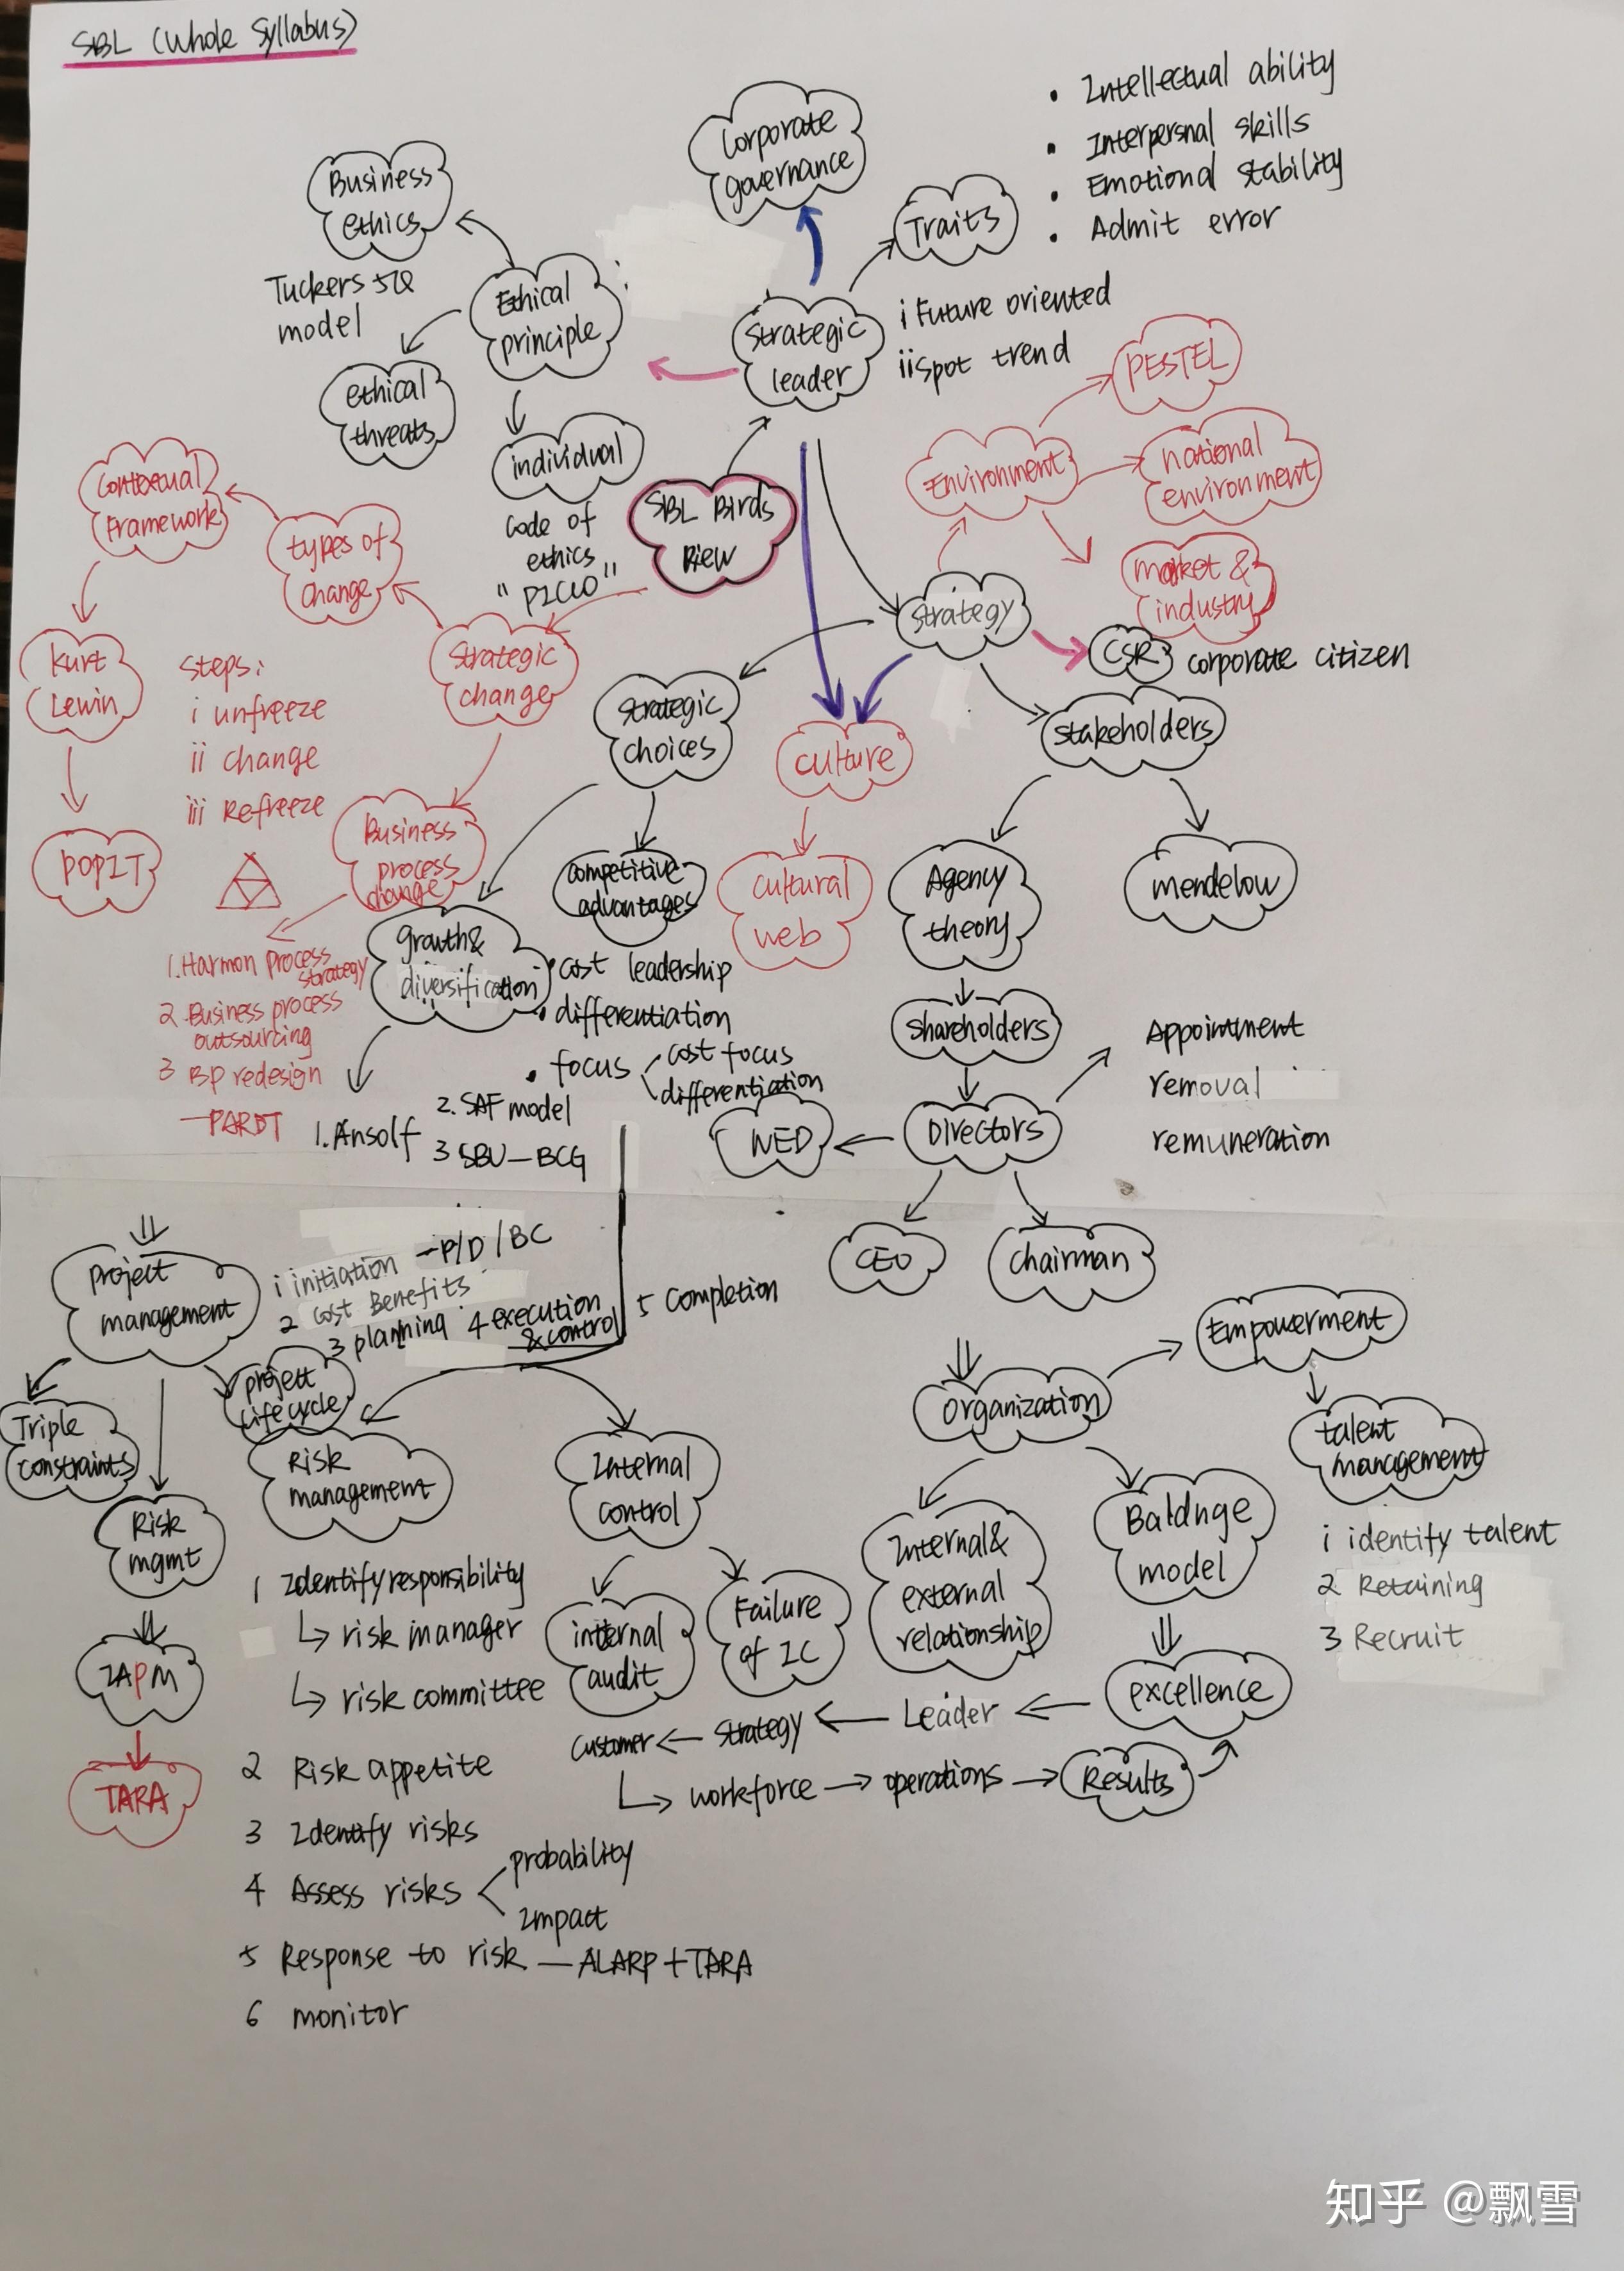 SBL (Whole Syllabus)
Corporate
governance
• Intellectual ability
• Interpersnal skills
• Emotional stability
• Admit error
Traits
Business
ethics
Tuckers 5Q
model
Ethical
principle
ethical
threats
Strategic
leader
i Future oriented
ii Spot trend
individual
Code of
ethics
SBL Birds
PESTEL
Environment
national
environment
market &
industry
Contexual
Framework
types of
change
Strategic
change
Kurt
Lewin
Steps:
i unfreeze
ii change
iii Refreeze
POPIT
Business
process
change
1. Harmon process
strategy
2 Business process
outsourcing
3 BP redesign
strategy
CSR corporate citizen
Strategic
choices
culture
cultural
web
stakeholders
Agency
theory
mendelow
competitive
advantages
• cost leadership
• differentiation
• focus
cost focus
differentiation
growth &
diversification
1. Ansolf
2. SAF model
3 SBU — BCG
Shareholders
Directors
Appointment
removal
remuneration
NED
CEO
Chairman
Project
management
i initiation — P/D/BC
2 Cost Benefits
3 planning
4 execution
& control
5 Completion
Triple
constraints
project
Lifecycle
Risk
mgmt
IAPM
TARA
Risk
management
1 Identify responsibility
↳ risk manager
↳ risk committee
2 Risk appetite
3 Identify risks
4 Assess risks
probability
Impact
5 Response to risk — ALARP + TARA
6 monitor
Internal
control
internal
audit
Failure
of IC
Organization
Empowerment
talent
management
i identify talent
2 Retaining
3 Recruit
Internal &
external
relationship
Baldrige
model
excellence
Leader
Strategy
Customer
workforce → operations → Results
知乎 @飘雪